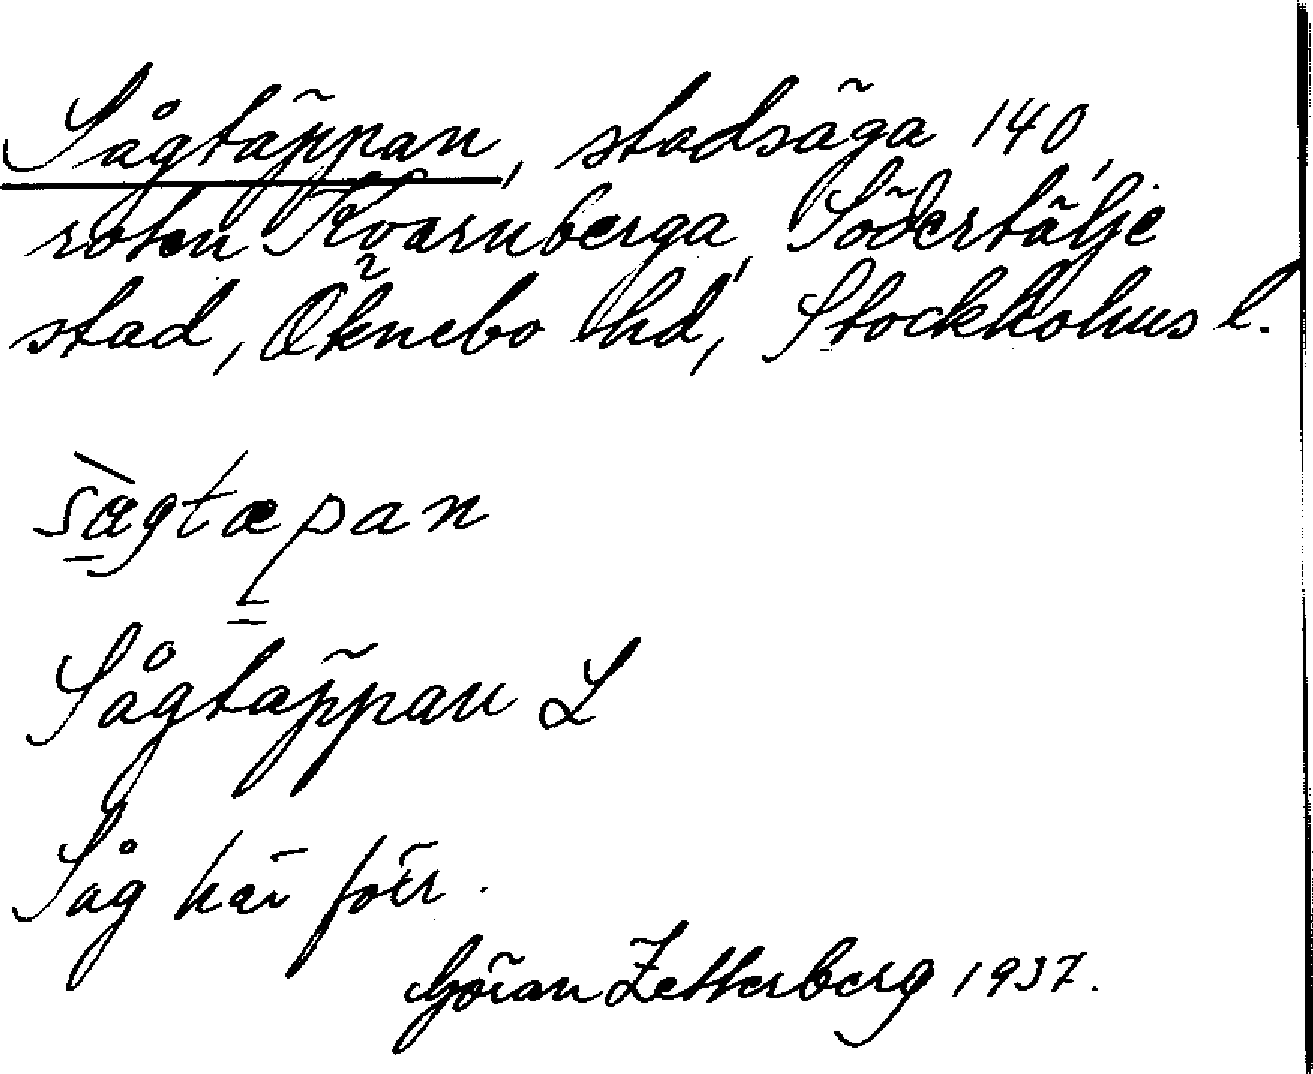 Sågtäppan, stadsäga 140,
roten Kvarnberga, Södertälje
stad, Öknebo hd, Stockholms l.
sàgtæpan
Sågtäppan L
Såg här förr.
Göran Zetterberg 1937.